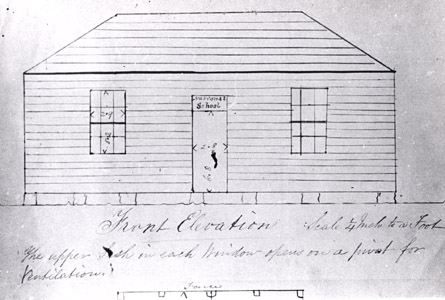 National
School
2-9
2-8
Front Elevation Scale ¼ Inch to a Foot
The upper Sash in each Window opens on a pivot for
Ventilation.